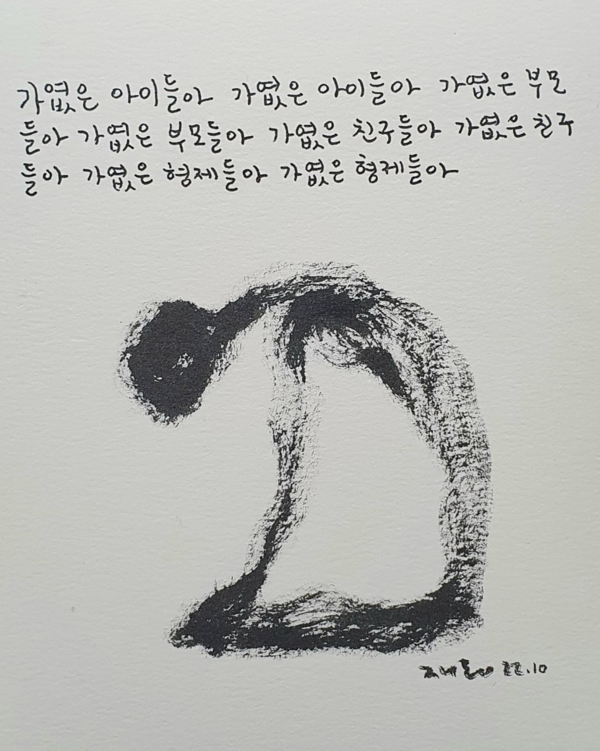 가엾은 아이들아 가엾은 아이들아 가엾은 부모
들아 가엾은 부모들아 가엾은 친구들아 가엾은 친구
들아 가엾은 형제들아 가엾은 형제들아
22.10